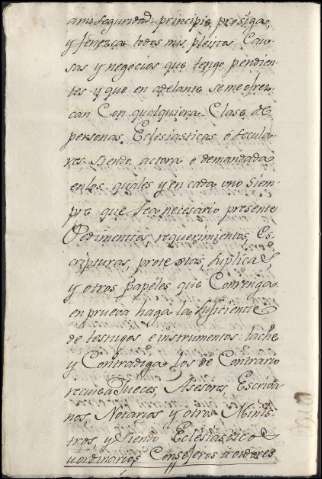 ami seguridad principie prosiga,
y fenezca todos mis pleitos, Cau-
sas y negocios que tengo pendien-
tes y que en adelante se me ofrez-
can Con qualquiera Clase de
personas, Eclesiasticas o secula-
res siendo actora o demandada
en los quales y en cada uno Siem-
pre que sea necesario presente
Pedimentos, requerimientos, Es-
cripturas, protestas, suplicas
y otros papeles que Convenga
en prueva haga la suficiente
de testigos e instrumentos tache
y Contradiga los de Contrario
recuse Jueces, Asesores, Escriba-
nos, Notarios y otros Minis-
tros, y siendo Eclesiastico
u ordinarios Consejeros